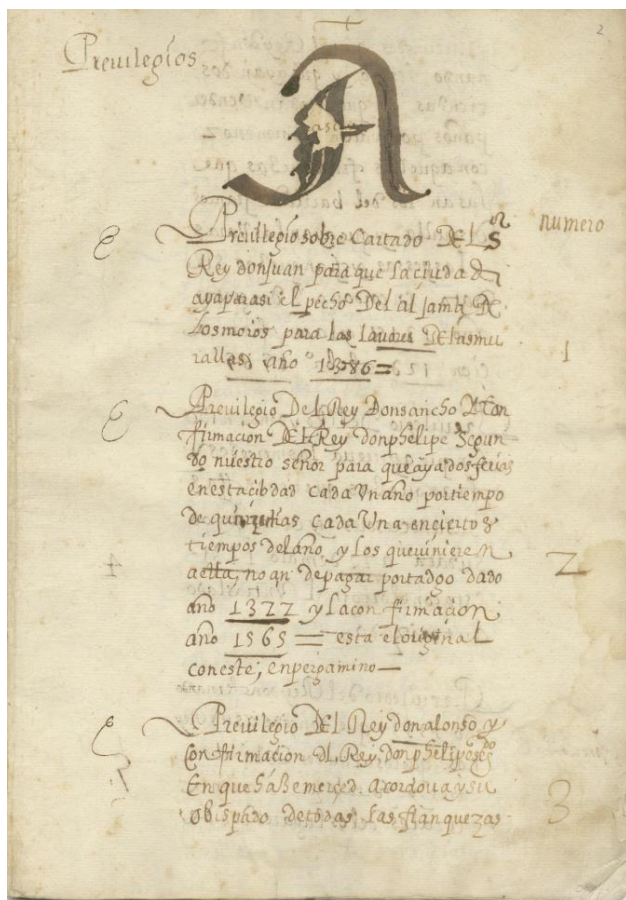 2
Preuilegios
A
numero
Preuillegio sobre Cartado DEL S.or
Rey don Juan para que la ciudad
aya para si el pecho Del al jama De
los moros para las lauores DElas mu
rallas año 1386 =
1
Preuilegio DeL Rey Don sancho y Con
firmacion DEL Rey don phelipe Segun
do nuestro señor para que aya dos ferias
en esta cibdad cada Un año por tiempo
de quinze dias cada Una en ciertos
tiempos del año y los que vinieren
a ella, no an de pagar portadgo dado
2
año 1322 y la confirmacion
año 1565 = esta el original
con este, en pergamino —
Preuilegio DEl Rey don alonso y
Confirmacion del Rey don phelipe seg.do
En que haze merced. a cordoua y su
3
obispado de todas las franquezas